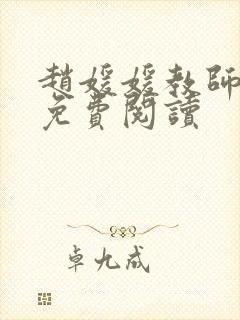 趙媛媛教師
免費閱讀
卓九成